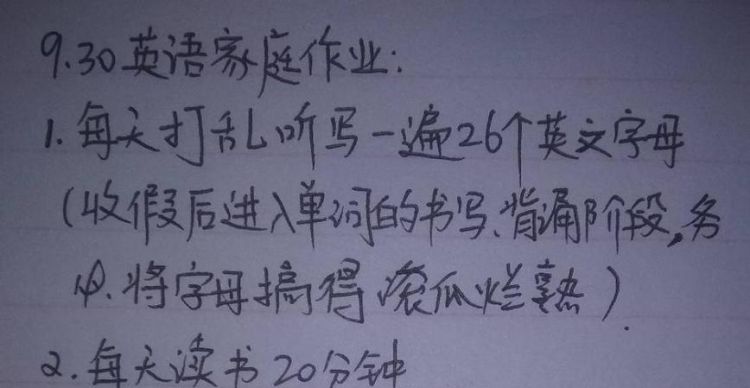 9.30英语家庭作业:
1.每天打乱听写一遍26个英文字母
(收假后进入单词的书写、背诵阶段,务
必.将字母搞得滚瓜烂熟).
2.每天读书20分钟